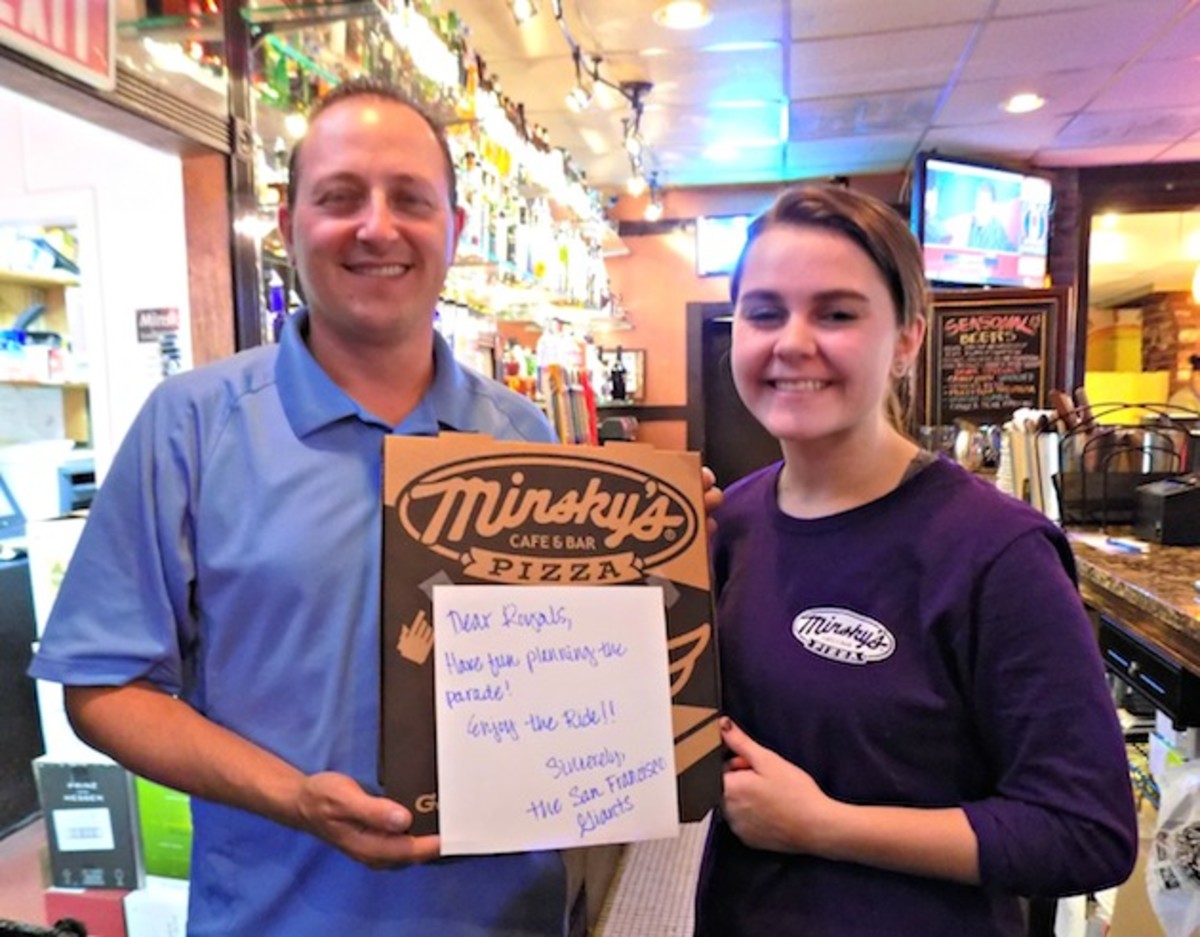 Minsky's®
CAFE & BAR
PIZZA
Dear Royals,
Have fun planning the
parade!
Enjoy the Ride!!
Sincerely,
the San Francisco
Giants
G
Minsky's
PIZZA
SEASONAL
BEERS
PRINZ
VON
HESSEN